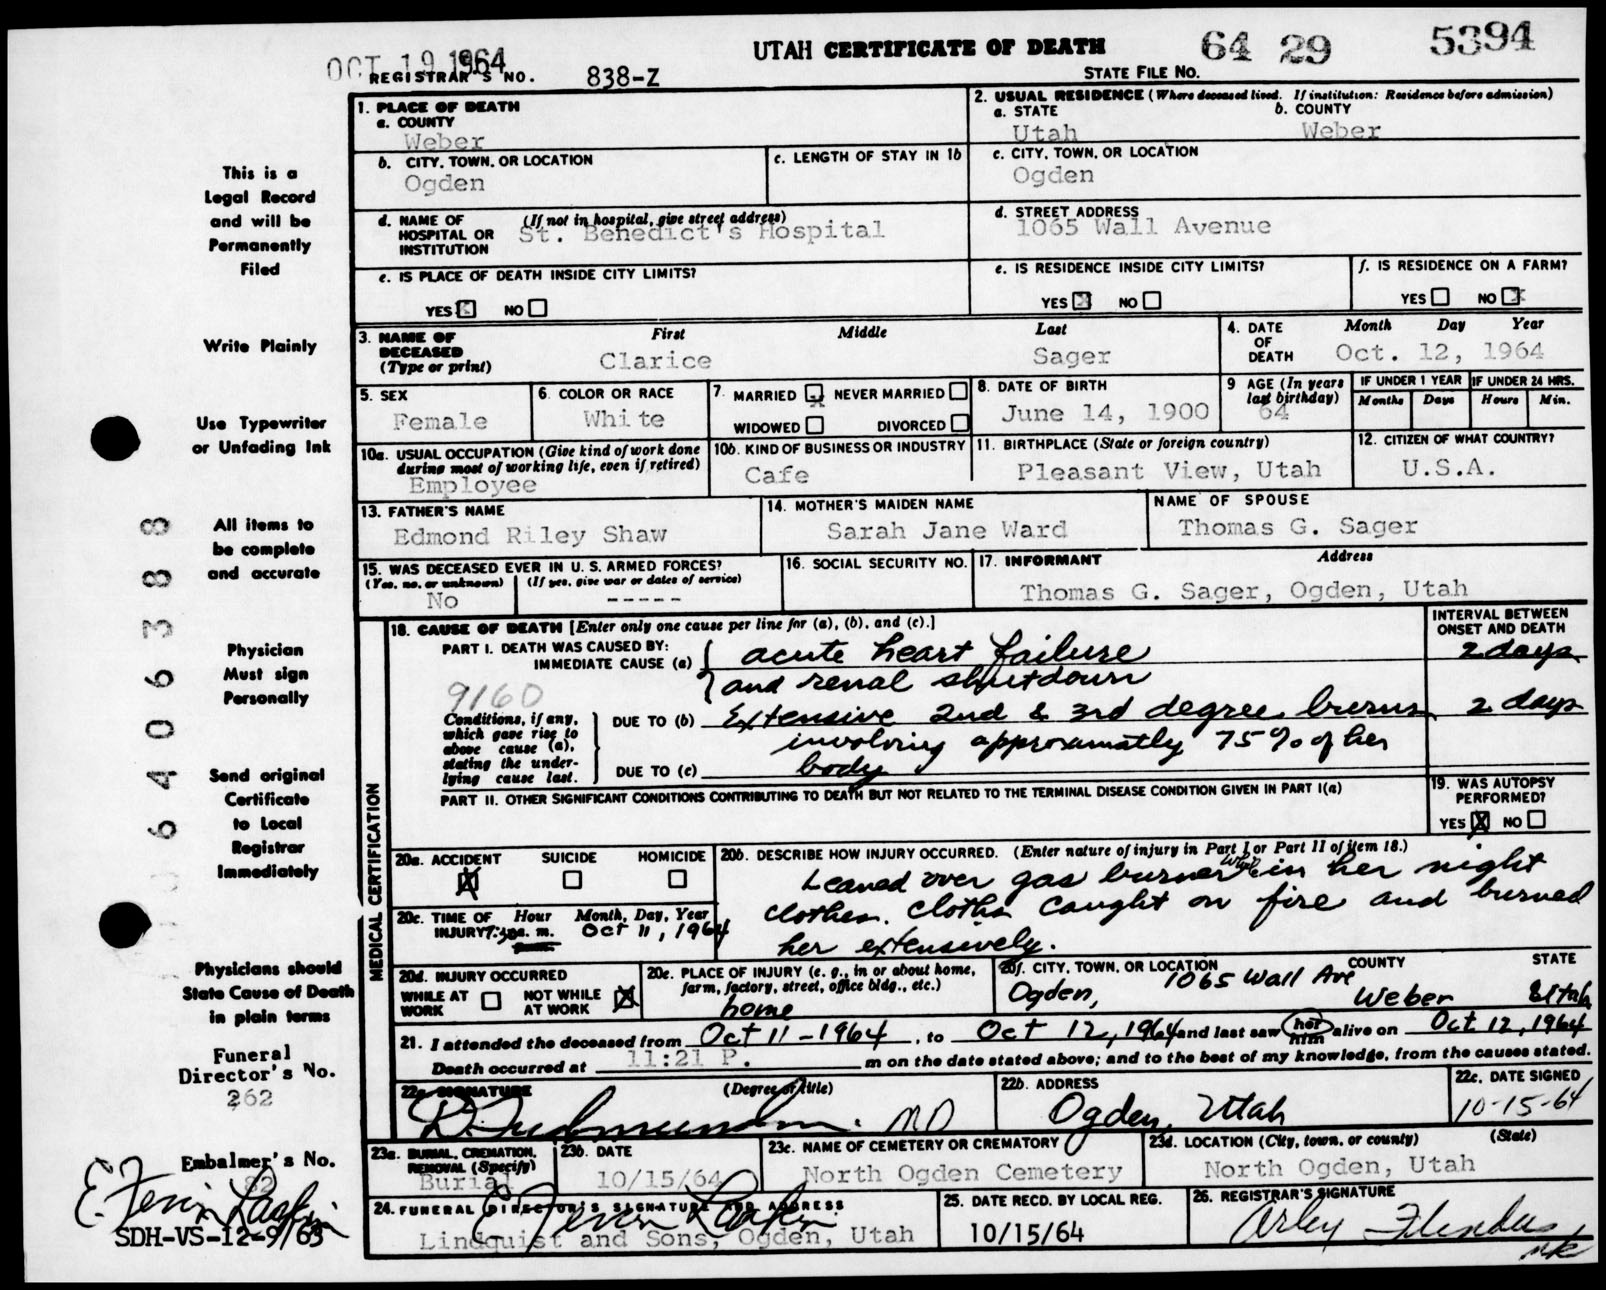 OCT 19 1964
UTAH CERTIFICATE OF DEATH
64 29 5394
REGISTRAR'S NO. 838-Z
STATE FILE NO.
1. PLACE OF DEATH
a. COUNTY
Weber
2. USUAL RESIDENCE (Where deceased lived. If institution: Residence before admission)
a. STATE b. COUNTY
Utah Weber
b. CITY, TOWN, OR LOCATION
Ogden
c. LENGTH OF STAY IN 1b
c. CITY, TOWN, OR LOCATION
Ogden
d. NAME OF HOSPITAL OR INSTITUTION
(If not in hospital, give street address)
St. Benedict's Hospital
d. STREET ADDRESS
1065 Wall Avenue
e. IS PLACE OF DEATH INSIDE CITY LIMITS?
YES X NO
e. IS RESIDENCE INSIDE CITY LIMITS?
YES X NO
f. IS RESIDENCE ON A FARM?
YES NO X
3. NAME OF DECEASED (Type or print)
First Middle Last
Clarice Sager
4. DATE OF DEATH
Month Day Year
Oct. 12, 1964
5. SEX
Female
6. COLOR OR RACE
White
7. MARRIED X NEVER MARRIED
WIDOWED DIVORCED
8. DATE OF BIRTH
June 14, 1900
9 AGE (In years last birthday)
64
IF UNDER 1 YEAR
Months Days
IF UNDER 24 HRS.
Hours Min.
10a. USUAL OCCUPATION (Give kind of work done during most of working life, even if retired)
Employee
10b. KIND OF BUSINESS OR INDUSTRY
Cafe
11. BIRTHPLACE (State or foreign country)
Pleasant View, Utah
12. CITIZEN OF WHAT COUNTRY?
U.S.A.
13. FATHER'S NAME
Edmond Riley Shaw
14. MOTHER'S MAIDEN NAME
Sarah Jane Ward
NAME OF SPOUSE
Thomas G. Sager
15. WAS DECEASED EVER IN U. S. ARMED FORCES?
(Yes, no, or unknown) (If yes, give war or dates of service)
No -----
16. SOCIAL SECURITY NO.
17. INFORMANT Address
Thomas G. Sager, Ogden, Utah
MEDICAL CERTIFICATION
18. CAUSE OF DEATH [Enter only one cause per line for (a), (b), and (c).]
INTERVAL BETWEEN ONSET AND DEATH
PART I. DEATH WAS CAUSED BY:
IMMEDIATE CAUSE (a) acute heart failure 2 days
and renal shutdown
9160
Conditions, if any, which gave rise to above cause (a), stating the underlying cause last.
DUE TO (b) Extensive 2nd & 3rd degree burns 2 days
involving approximatly 75% of her
DUE TO (c) body
PART II. OTHER SIGNIFICANT CONDITIONS CONTRIBUTING TO DEATH BUT NOT RELATED TO THE TERMINAL DISEASE CONDITION GIVEN IN PART I(a)
19. WAS AUTOPSY PERFORMED?
YES X NO
20a. ACCIDENT SUICIDE HOMICIDE
X
20b. DESCRIBE HOW INJURY OCCURRED. (Enter nature of injury in Part I or Part II of item 18.)
Leaned over gas burner while in her night
clothes. Cloths caught on fire and burned
her extensively.
20c. TIME OF INJURY
Hour Month, Day, Year
7:30 a. m. Oct 11, 1964
p. m.
20d. INJURY OCCURRED
WHILE AT WORK NOT WHILE AT WORK X
20e. PLACE OF INJURY (e. g., in or about home, farm, factory, street, office bldg., etc.)
home
20f. CITY, TOWN, OR LOCATION COUNTY STATE
Ogden, 1065 Wall Ave Weber Utah
21. I attended the deceased from Oct 11-1964, to Oct 12, 1964 and last saw her him alive on Oct 12, 1964
Death occurred at 11:21 P. m on the date stated above; and to the best of my knowledge, from the causes stated.
22a. SIGNATURE (Degree or title)
MD
22b. ADDRESS
Ogden, Utah
22c. DATE SIGNED
10-15-64
23a. BURIAL, CREMATION, REMOVAL (Specify)
Burial
23b. DATE
10/15/64
23c. NAME OF CEMETERY OR CREMATORY
North Ogden Cemetery
23d. LOCATION (City, town, or county) (State)
North Ogden, Utah
24. FUNERAL DIRECTOR'S SIGNATURE AND ADDRESS
Lindquist and Sons, Ogden, Utah
25. DATE RECD. BY LOCAL REG.
10/15/64
26. REGISTRAR'S SIGNATURE
Arley Flinders
mk
This is a
Legal Record
and will be
Permanently
Filed
Write Plainly
Use Typewriter
or Unfading Ink
All items to
be complete
and accurate
Physician
Must sign
Personally
Send original
Certificate
to Local
Registrar
Immediately
Physicians should
State Cause of Death
in plain terms
Funeral
Director's No.
262
Embalmer's No.
82
SDH-VS-12-9/63
6406388